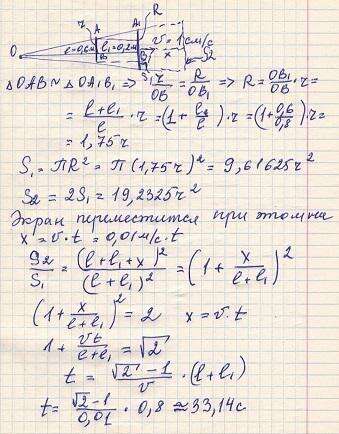 A A₁ R
r l=0,6м l₁=0,2м v=1см/с
O B B₁ x S₁ S2
△OAB ~ △OA₁B₁ ⇒ r/OB = R/OB₁ ⇒ R = OB₁/OB · r =
= (l+l₁)/l · r = (1 + l₀/l) · r = (1 + 0,6/0,8) · r =
= 1,75r
S₁ = ПR² = П(1,75r)² = 9,61625r²
S2 = 2S₁ = 19,2325r²
Экран переместится при этом на
x = v · t = 0,01м/с · t
S2/S₁ = (l+l₁+x)²/(l+l₁)² = (1 + x/(l+l₁))²
(1 + x/(l+l₁))² = 2 x = v · t
1 + vt/(l+l₁) = √2
t = (√2 - 1)/v · (l+l₁)
t = (√2 - 1)/0,01 · 0,8 ≈ 33,14с